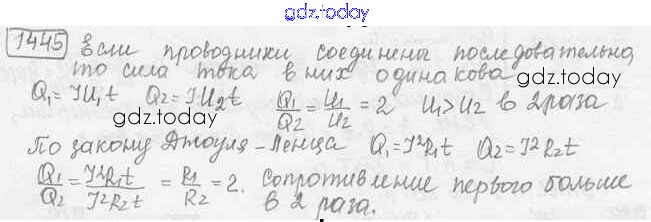 gdz.today
1445 Если проводники соединены последовательно,
то сила тока в них одинакова
gdz.today
Q₁=IU₁t Q₂=IU₂t Q₁/Q₂ = U₁/U₂ = 2 U₁>U₂ в 2 раза
gdz.today
По закону Джоуля-Ленца Q₁=I²R₁t Q₂=I²R₂t
Q₁/Q₂ = I²R₁t/I²R₂t = R₁/R₂ = 2. Сопротивление первого больше
в 2 раза.
gdz.today